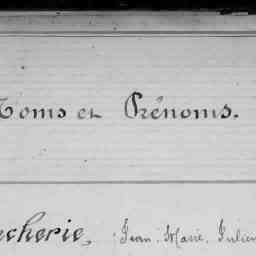 Noms et Prénoms.
echerie, Jean Marie Julien